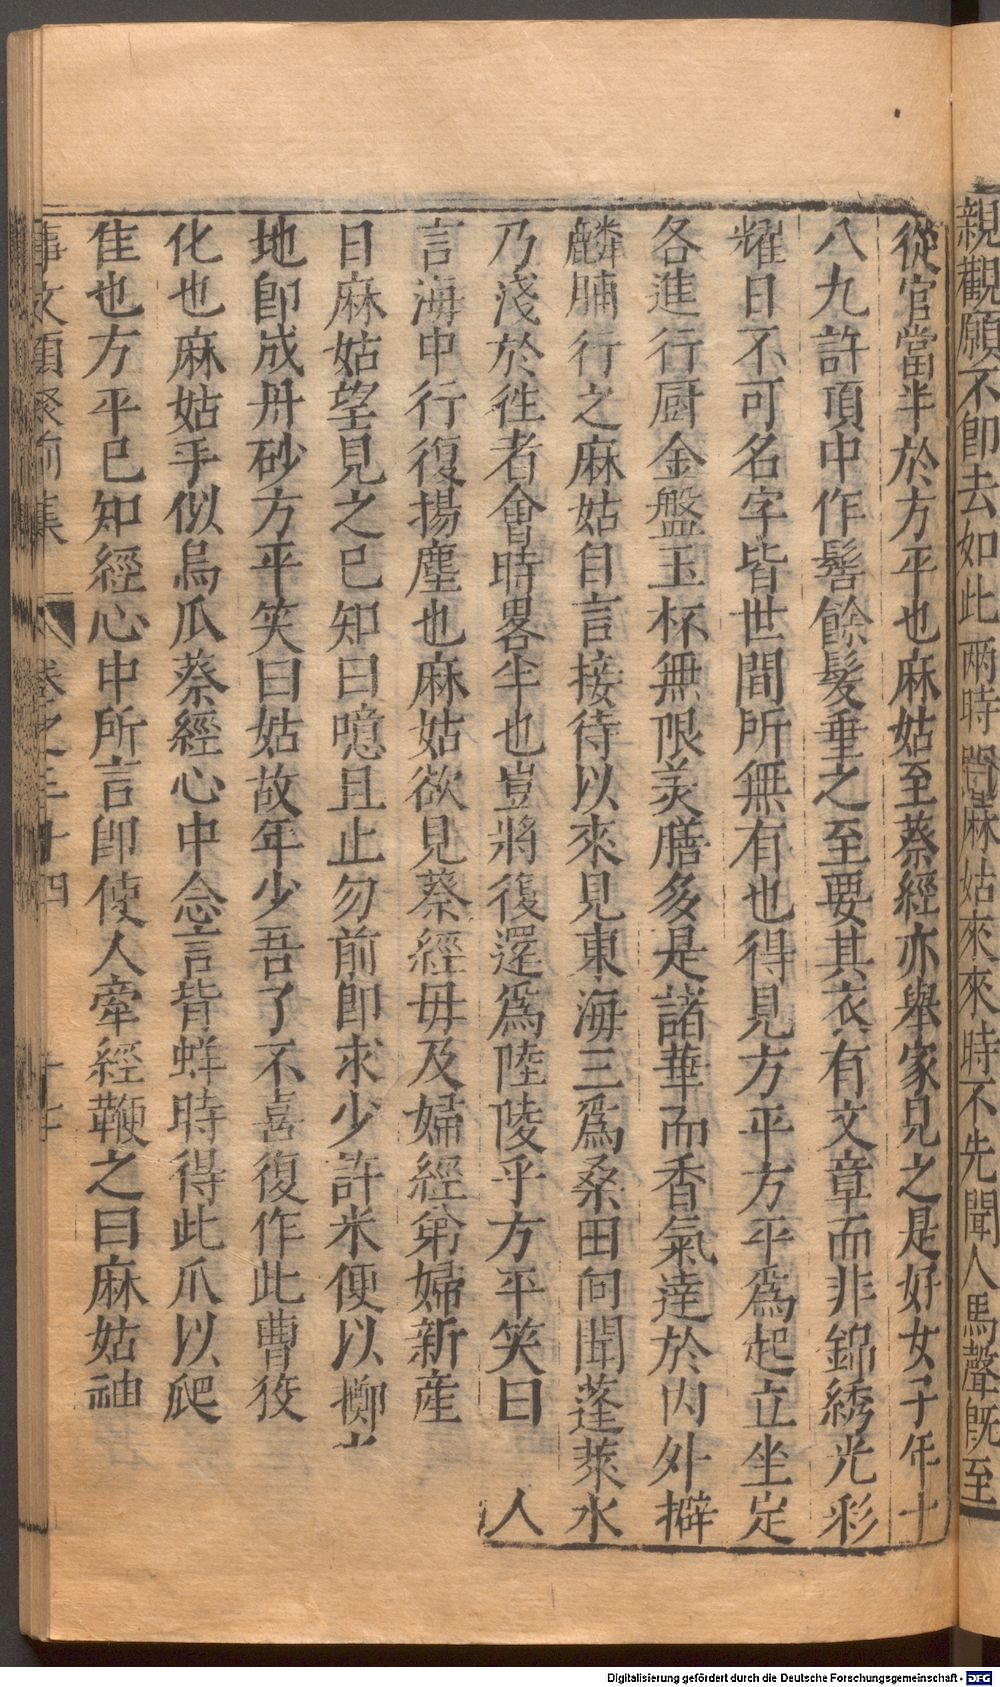 親觀願不即去如此兩時間麻姑來來時不先聞人馬聲旣至
從官當半於方平也麻姑至蔡經亦舉家見之是好女子年十
八九許頂中作髻餘髮垂之至要其衣有文章而非錦綉光彩
耀日不可名字皆世間所無有也得見方平方平爲起立坐定
各進行厨金盤玉杯無限美膳多是諸華而香氣達於内外擗
麟脯行之麻姑自言接待以來見東海三爲桑田向聞蓬萊水
乃淺於徃者會時畧半也豈將復還爲陸陵乎方平笑曰 人
言海中行復揚塵也麻姑欲見蔡經母及婦經弟婦新産
日麻姑望見之已知曰噫且止勿前即求少許米便以擲之
地即成丹砂方平笑曰姑故年少吾了不喜復作此曹狡
化也麻姑手似鳥爪蔡經心中念言背蛘時得此爪以爬
隹也方平已知經心中所言即使人牽經鞭之曰麻姑神
事文類聚前集 卷之三十四 十七
Digitalisierung gefördert durch die Deutsche Forschungsgemeinschaft - DFG